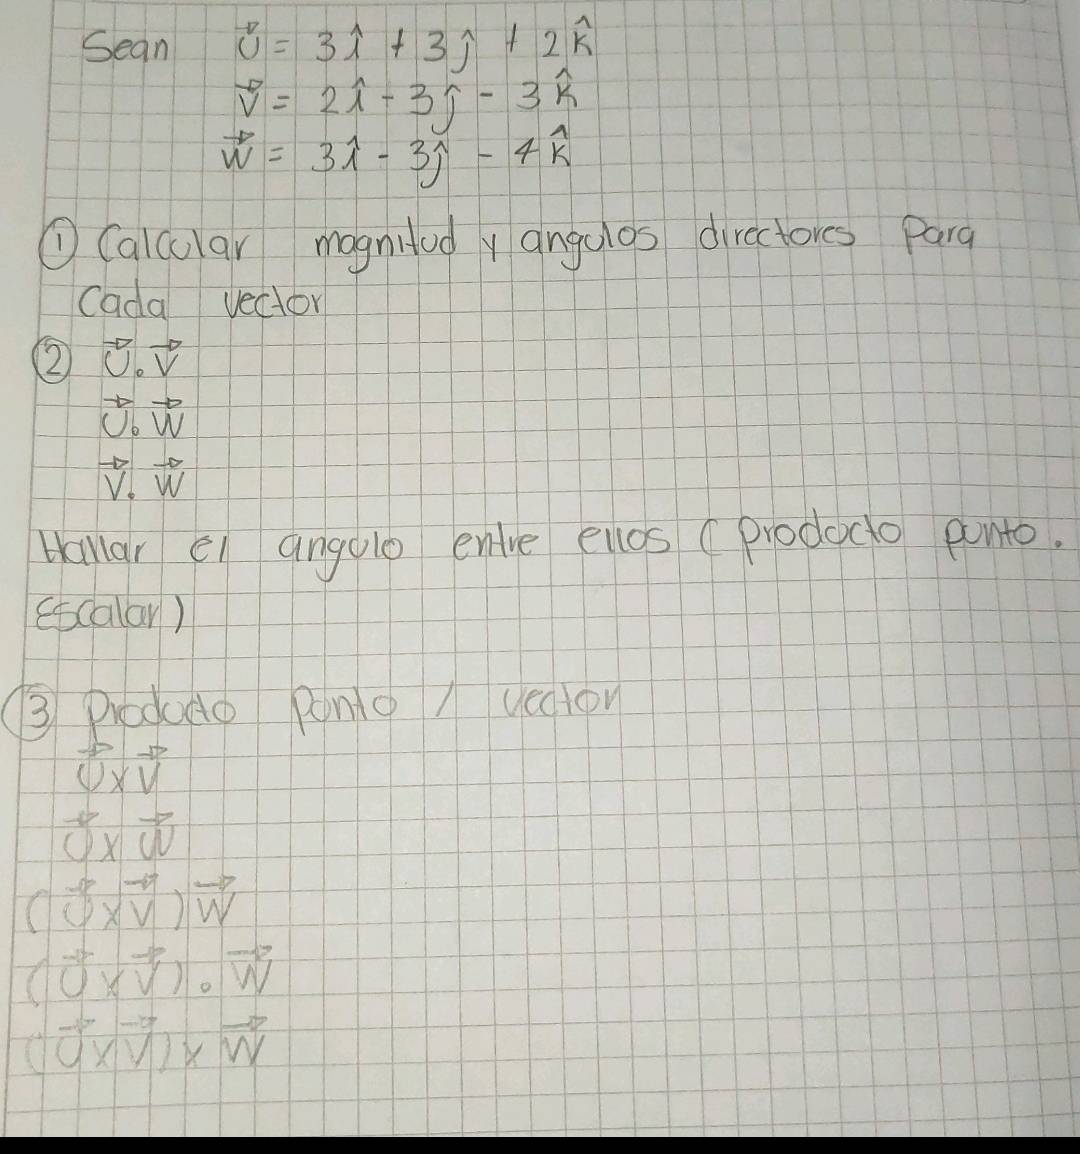 Sean U⃗ = 3î + 3ĵ + 2k̂
V⃗ = 2î - 3ĵ - 3k̂
W⃗ = 3î - 3ĵ - 4k̂
① Calcular magnitud y angulos directores para
cada vector
② U⃗.V⃗
U⃗.W⃗
V⃗.W⃗
Hallar el angulo entre ellos (Producto punto.
Escalar)
③ Producto Punto / vector
U⃗xV⃗
U⃗xW⃗
(U⃗xV⃗)W⃗
(U⃗xV⃗).W⃗
(U⃗xV⃗)xW⃗